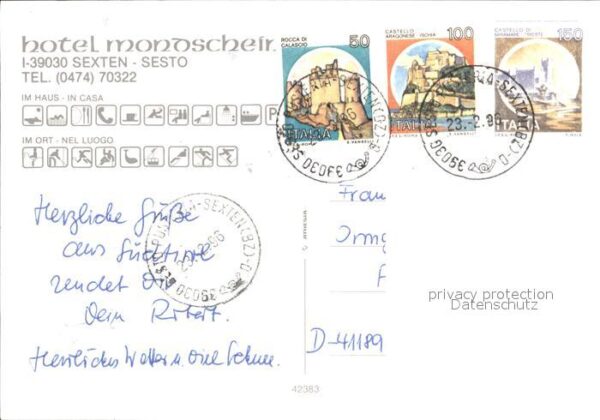 hotel mondschein
I-39030 SEXTEN - SESTO
TEL. (0474) 70322
IM HAUS - IN CASA
P
IM ORT - NEL LUOGO
ROCCA DI CALASCIO
50
ITALIA
CASTELLO ARAGONESE - ISCHIA
100
ITALIA
CASTELLO DI MIRAMARE - TRIESTE
150
ITALIA
39030
23.-2.96
SEXTEN (BZ)
Herzliche Grüße
aus Südtirol
sendet Dir
Dein Robert.
Herrliches Wetter u. viel Schnee.
Fran
Orm
D-41189
privacy protection
Datenschutz
42383